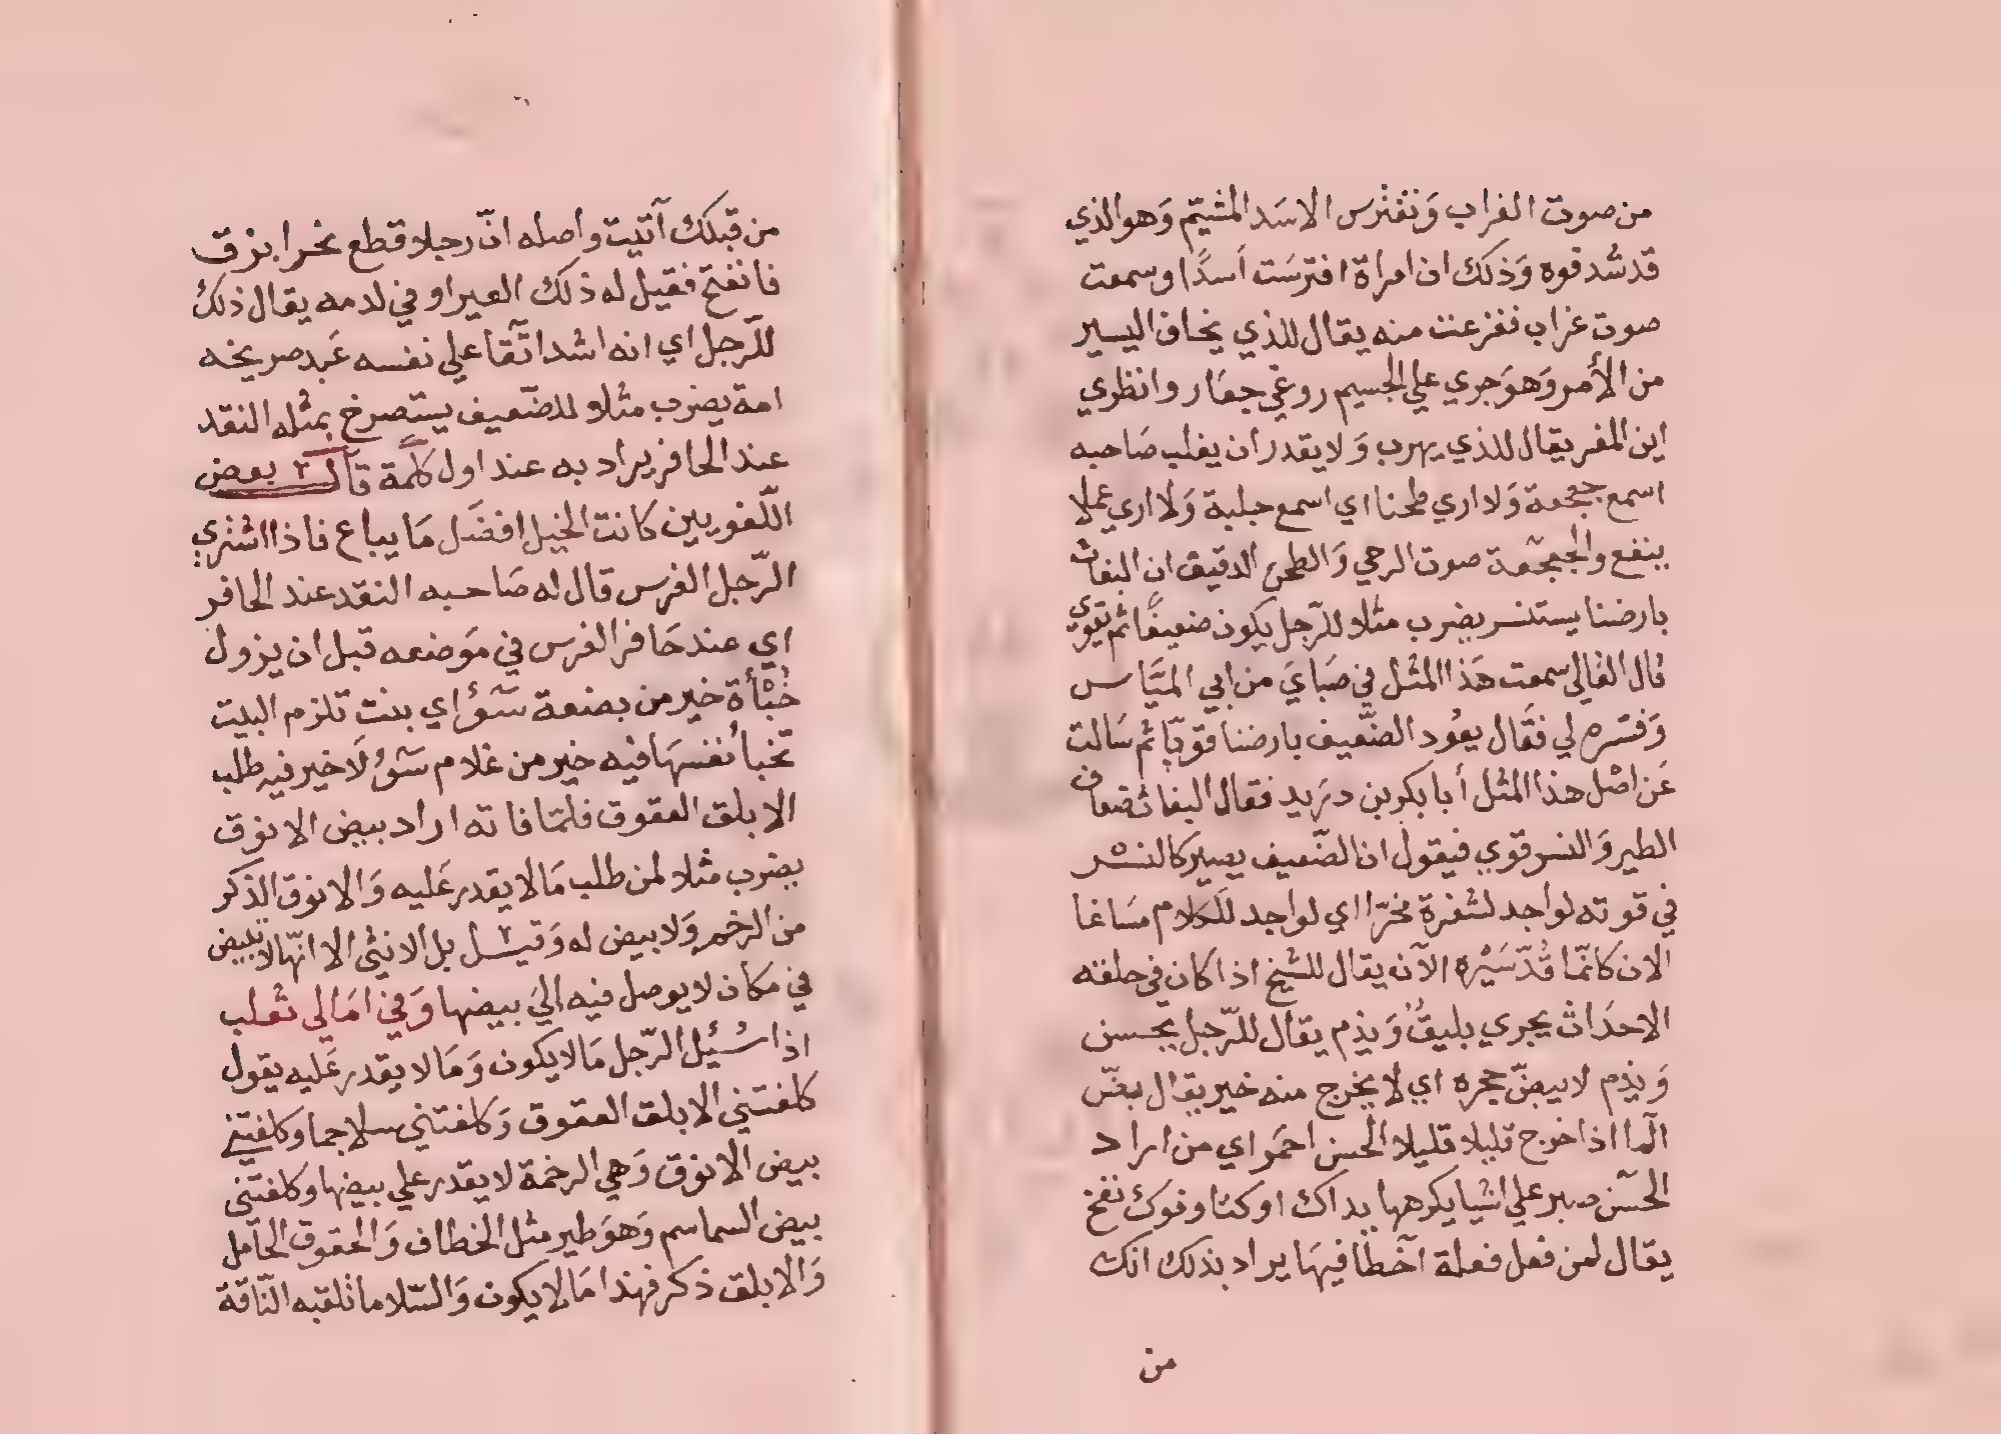 من صوت الغراب وَتفترس الاسَد المشيّم وَهو الذي
قد شد قوه وَذلك ان امراة افترسَت أسدًا وسمعت
صوت غراب ففزعت منه يقال للذي يخاف اليسير
من الأمر وَهوَ جري علي الجسيم روغي جعَار وانظري
اين المفر يقال للذي يهرب وَلا يقدر ان يغلب صَاحبه
اسمع جعجعة وَلا اري طحنا اي اسمع جلبة وَلا اري عملا
ينفع والجعجعة صوت الرحي وَالطحن الدقيق ان البغاث
بارضنا يستنسر يضرب مثلا للرّجل يكون ضعيفًا ثم تقوي
قال القالي سمعت هَذا المثل في صَبايَ من ابي الميَّاس
وَفسّره لي فقَال يعُود الضّعيف بارضنا قويّا ثم سَالت
عَن اصْل هذا المثل أبا بكر بن دريد فقال البغاث ضعاف
الطير وَالنسر قوي فيقول ان الضّعيف يصير كالنسْر
في قوته لواجد لشفرة مخرّا اي لواجد للكلام مسَاغا
الان كانمّا قُدّ سَيْره الآن يقال للشيخ اذا كان في خلقته
الاحدَاث يجري بليقٌ وَيذم يقال للرّجل يحسن
وَيذم لا يبضّ حجره اي لا يخرج منه خير يقال بضّ
المآ اذا خرج قليلا قليلا الحسن احمَر اي من اراد
الحسْن صبر علي اشيا يكرهها يداك اوكتا وفوك نفخ
يقال لمن فعل فعلة آخطا فيهَا يراد بذلك انك
من
من قبلك آتيت واصله انّ رجلا قطع بحرا بزق
فانفتح فقيل له ذلك العير اوفي لدمه يقال ذلك
للرّجل اي انه اشد اتّقا علي نفسه عَبد صريخه
امة يضرب مثلا للضّعيف يستصرخ بمثله النقد
عند الحافر يراد به عند اول كلمة قال بعض
اللّغويين كانت الخيل افضَل مَا يباع فاذا اشتري
الرّجل الفرس قال له صَاحبه النقد عند الحافر
اي عند حَافر الفرس في موَضعه قبل ان يزول
خُبْأة خير من بضعة سَوْءٍ اي بنت تلزم البيت
تخبأ نفسهَا فيه خير من غلام سَوْءٍ لَا خير فيه طلب
الابلق العقوق فلمّا فاته اراد بيض الانوق
يضرب مثلا لمن طلب مَا لا يقدر عَليه وَالانوق الذكر
من الرخم وَلا بيض له وَقيل بل الانثي الا انّها لا تبيض
في مكان لا يوصل فيه الي بيضها وَفي امَالي ثعلب
اذا سُئيل الرّجل مَا لا يكون وَمَا لا يقدر عَليه يقول
كلفتني الابلق العقوق وَكلفتني سلا جما وكلفتني
بيض الانوق وَهي الرخمة لا يقدر علي بيضها وكلفتني
بيض السماسم وَهوَ طير مثل الخطاف وَالعقوق الحامل
وَالابلق ذكر فهذا مَا لا يكون وَالسّلا ما تلقيه النّاقة